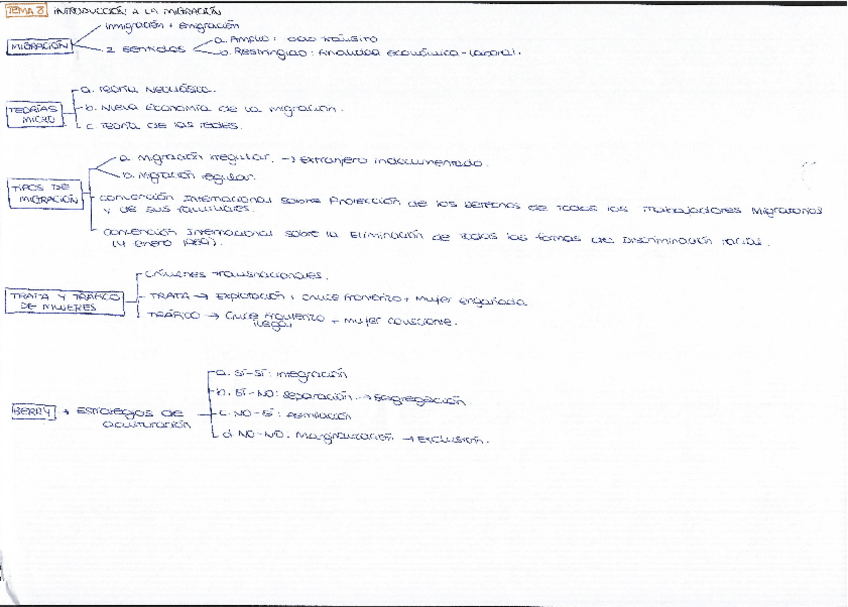 TEMA 8 INTRODUCCIÓN A LA MIGRACIÓN
inmigración + emigración
MIGRACIÓN
2 sentidos
a. Amplio: todo tránsito
b. Restringido: finalidad económica-laboral.
a. Teoría Neoclásica.
TEORÍAS MICRO
b. Nueva Economía de la migración.
c. Teoría de las redes.
a. Migración irregular. → extranjero indocumentado.
b. Migración regular.
TIPOS DE MIGRACIÓN
Convención Internacional sobre Protección de los Derechos de todos los Trabajadores Migratorios
y de sus familiares.
Convención Internacional sobre la Eliminación de todas las formas de Discriminación racial.
(4 enero 1969).
Crímenes transnacionales.
TRATA Y TRÁFICO DE MUJERES
TRATA → Explotación + cruce fronterizo + mujer engañada
TRÁFICO → Cruce fronterizo + mujer consciente.
ilegal
a. SÍ-SÍ: integración
b. SÍ-NO: separación → segregación
BERRY → ESTRATEGIAS DE
aculturación
c. NO-SÍ: asimilación
d. NO-NO: Marginación → EXCLUSIÓN.